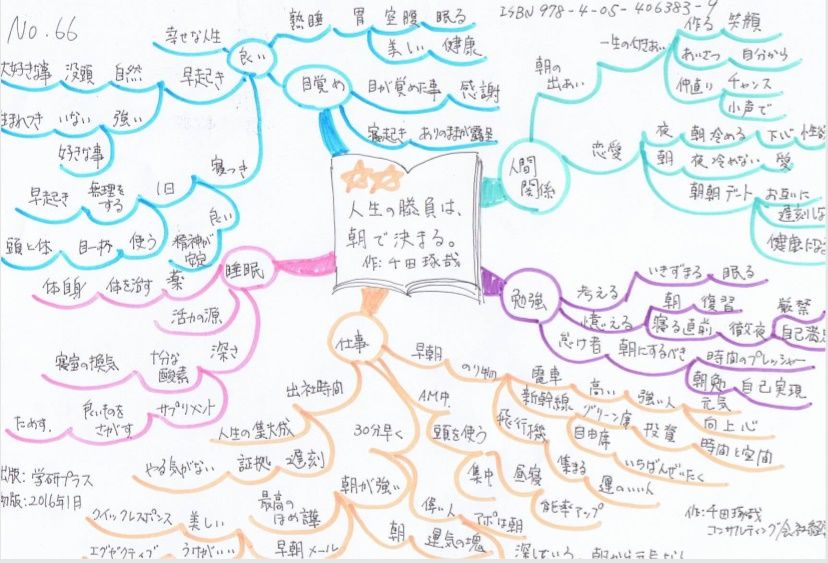 No. 66
ISBN 978-4-05-406383-9
人生の勝負は、
朝で決まる。
作:千田琢哉
目覚め
良い
幸せな人生
熟睡
胃
空腹
眠る
美しい
健康
目が覚めた事
感謝
寝起き
ありのまま
早起き
自然
没頭
大好きな事
強い
いない
好きな事
寝つき
1日
無理をする
早起き
使う
目一杯
頭と体
良い
精神が
安定
人間
関係
朝の
出あい
一生の付きあい
作る
笑顔
あいさつ
自分から
仲直り
チャンス
小声で
恋愛
夜
朝冷める
下心
朝
夜冷れない
愛
朝朝デート
お互いに
遅刻しな
健康にな
勉強
考える
いきずまる
眠る
憶える
朝
復習
寝る直前
徹夜
厳禁
自己満足
怠け者
朝にするべき
時間のプレッシャー
朝勉
自己実現
睡眠
薬
体を治す
体自身
活力の源
深さ
十分な
酸素
寝室の換気
サプリメント
良いものを
さがす
ためす。
仕事
早朝
のり物
電車
新幹線
高い
強い人
元気
グリーン席
向上心
自由席
投資
時間と空間
飛行機
集まる
いちばんぜいたく
運のいい人
AM中
頭を使う
集中
昼寝
能率アップ
出社時間
人生の集大成
30分早く
遅刻
証拠
やる気がない
朝が強い
最高の
ほめ言葉
美しい
クイックレスポンス
偉い人
アポは朝
朝
運気の塊
早朝メール
うけがいい
エグゼクティブ
出版:学研プラス
初版:2016年1月
作:千田琢哉
コンサルティング会社経